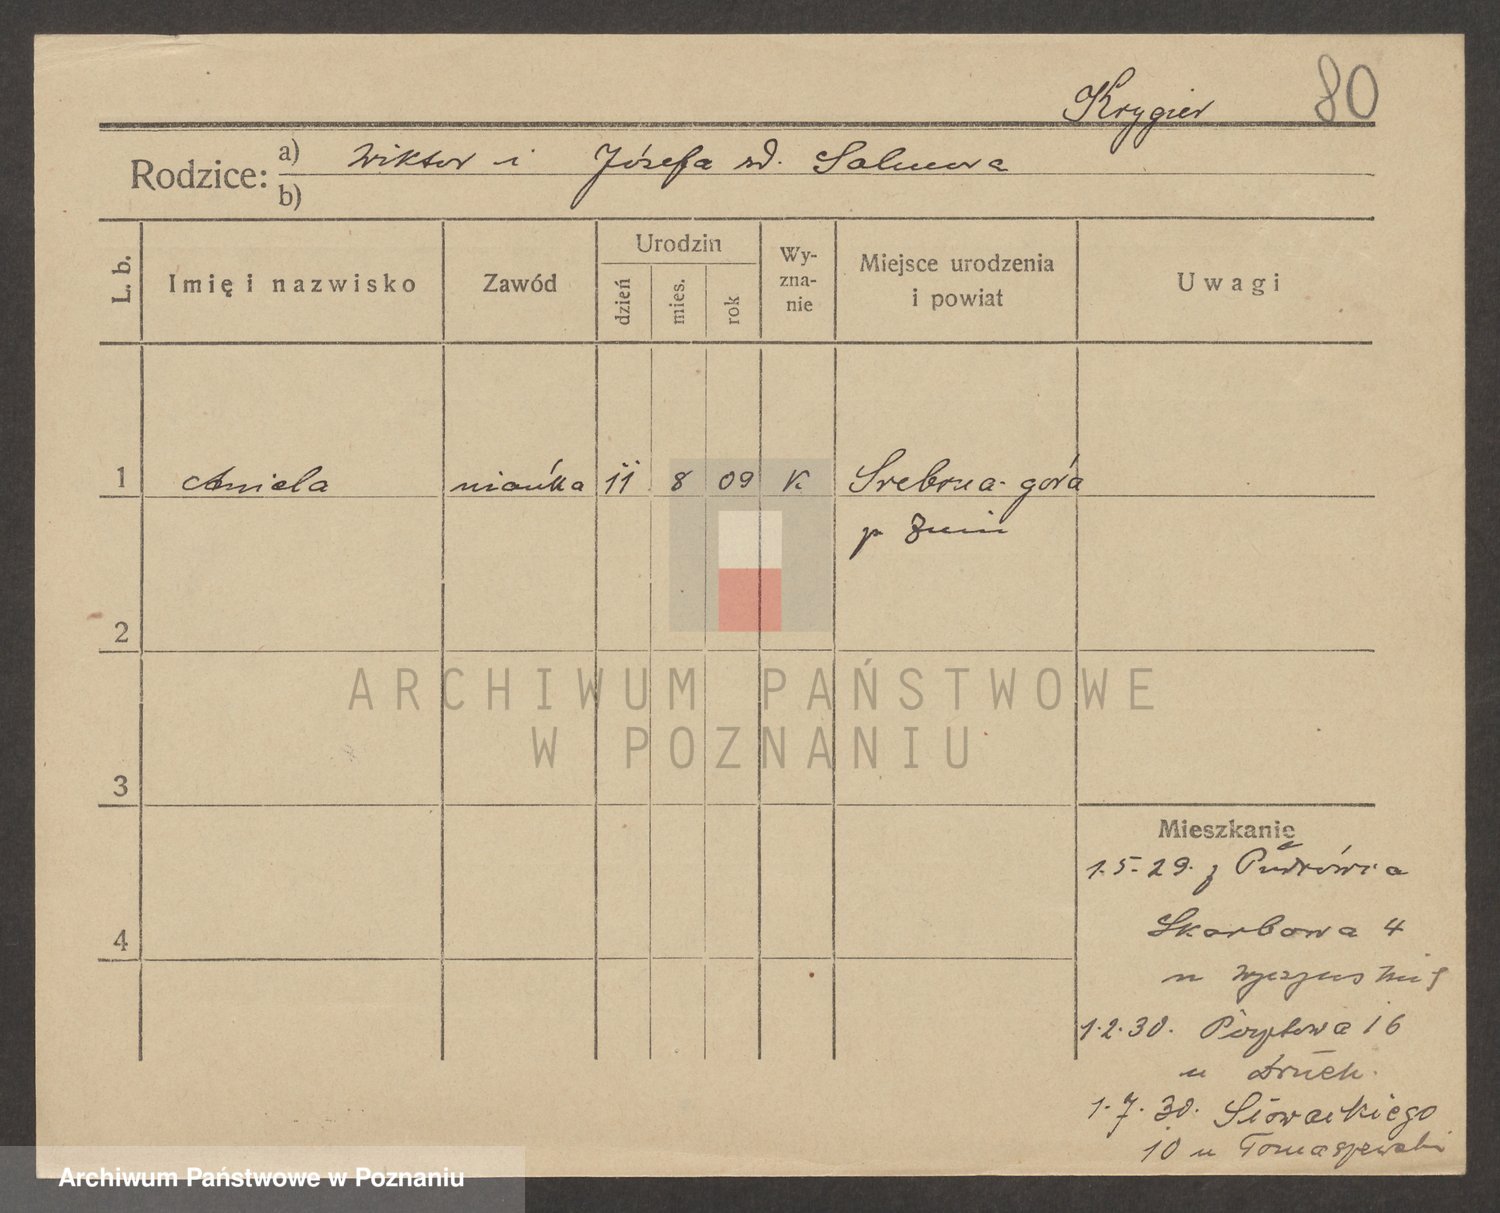 Krygier 80
Rodzice: a) Wiktor i Józefa
b)
L. b.
Imię i nazwisko
Zawód
Urodzin
dzień
mies.
rok
Wy-
zna-
nie
Miejsce urodzenia
i powiat
Uwagi
1 Aniela niańka 11 8 09 K Srebrna-góra
p Żnin
2
3
4
Mieszkanie
1.5.29. z
Skarbowa 4
u
1.2.30. 16
u
1.7.30. Słowackiego
10 u Tomaszewski
ARCHIWUM PAŃSTWOWE
W POZNANIU
Archiwum Państwowe w Poznaniu